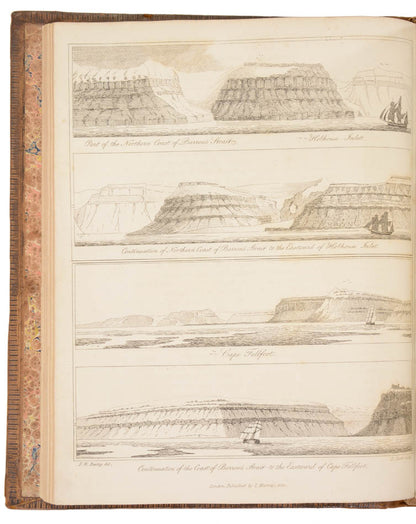 Part of the Northern Coast of Barrows Strait. Hothouse Inlet.
Continuation of Northern Coast of Barrows Strait to the Eastward of Hothouse Inlet.
Cape Fellfoot.
Continuation of the Coast of Barrows Strait to the Eastward of Cape Fellfoot.
London, Published by J. Murray,